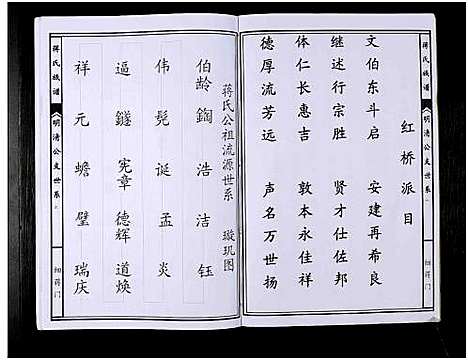 红桥派目
文伯东斗启 安建再希良
继述行宗胜 贤才仕佐邦
体仁长惠吉 敦本永佳祥
德厚流芳远 声名万世扬
蒋氏族谱
明清公支世系
细蒋门
蒋氏公祖流源世系 璇玑图
伯龄 铜 浩 洁 钰
伟 髡 诞 孟 炎
逼 鐩 宪章 德辉 道焕
祥 元 蟾 璧 瑞庆
蒋氏族谱
明清公支世系
细蒋门